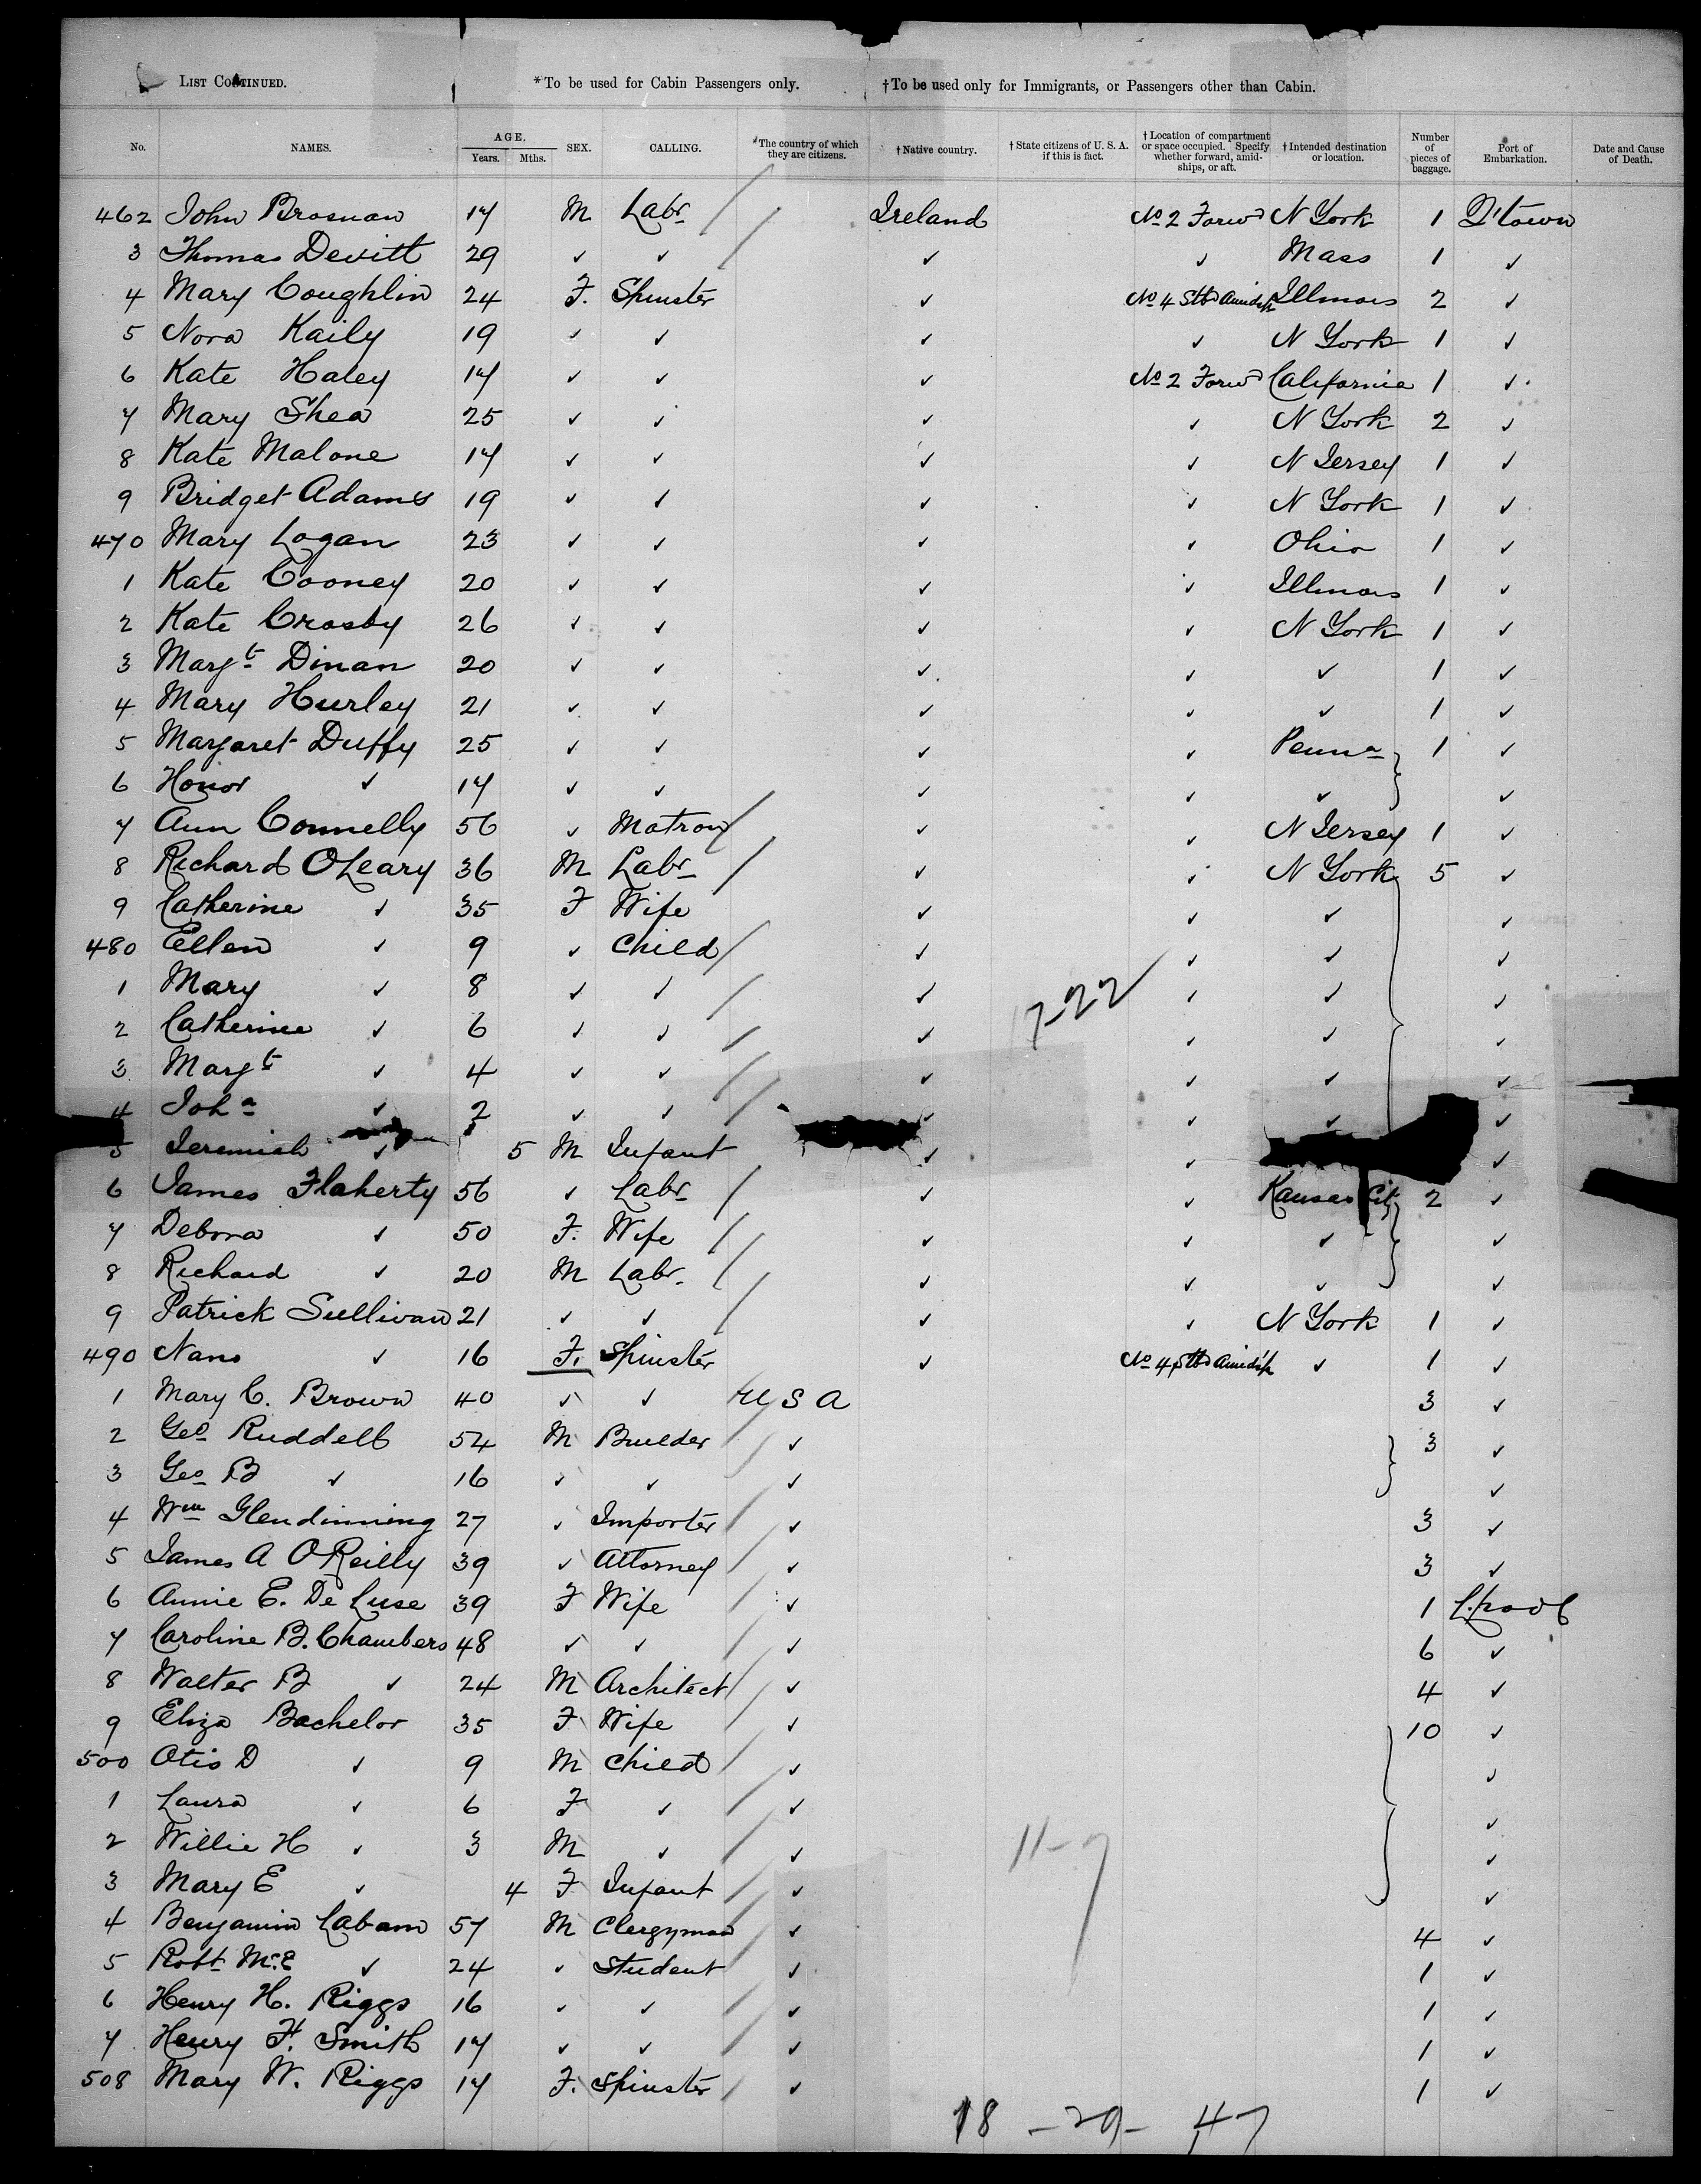 LIST CONTINUED. *To be used for Cabin Passengers only. †To be used only for Immigrants, or Passengers other than Cabin.
No. NAMES. AGE. Years. Mths. SEX. CALLING. *The country of which they are citizens. †Native country. †State citizens of U. S. A. if this is fact. †Location of compartment or space occupied. Specify whether forward, amidships, or aft. †Intended destination or location. Number of pieces of baggage. Port of Embarkation. Date and Cause of Death.
462 John Brosnan 17 M Labr Ireland No 2 Forwd N York 1 Q'town
3 Thomas Devitt 29 ✓ ✓ ✓ ✓ Mass 1 ✓
4 Mary Coughlin 24 F. Spinster ✓ No 4 Stbd Amidsh Illinois 2 ✓
5 Nora Kaily 19 ✓ ✓ ✓ ✓ N York 1 ✓
6 Kate Haley 17 ✓ ✓ ✓ No 2 Forwd California 1 ✓
7 Mary Shea 25 ✓ ✓ ✓ ✓ N York 2 ✓
8 Kate Malone 17 ✓ ✓ ✓ ✓ N Jersey 1 ✓
9 Bridget Adams 19 ✓ ✓ ✓ ✓ N York 1 ✓
470 Mary Logan 23 ✓ ✓ ✓ ✓ Ohio 1 ✓
1 Kate Cooney 20 ✓ ✓ ✓ ✓ Illinois 1 ✓
2 Kate Crosby 26 ✓ ✓ ✓ ✓ N York 1 ✓
3 Margt Dinan 20 ✓ ✓ ✓ ✓ ✓ 1 ✓
4 Mary Hurley 21 ✓ ✓ ✓ ✓ ✓ 1 ✓
5 Margaret Duffy 25 ✓ ✓ ✓ ✓ Penna 1 ✓
6 Honor ✓ 17 ✓ ✓ ✓ ✓ ✓ ✓
7 Ann Connelly 56 ✓ Matron ✓ ✓ N Jersey 1 ✓
8 Richard OLeary 36 M Labr ✓ ✓ N York 5 ✓
9 Catherine ✓ 35 F Wife ✓ ✓ ✓ ✓
480 Ellen ✓ 9 ✓ Child ✓ ✓ ✓ ✓
1 Mary ✓ 8 ✓ ✓ ✓ ✓ ✓ ✓
7-22
2 Catherine ✓ 6 ✓ ✓ ✓ ✓ ✓ ✓
3 Margt ✓ 4 ✓ ✓ ✓ ✓ ✓ ✓
4 Joha ✓ 2 ✓ ✓ ✓ ✓ ✓ ✓
5 Jeremiah ✓ 5 M Infant ✓ ✓ ✓
6 James Flaherty 56 ✓ Labr ✓ ✓ Kansas City 2 ✓
7 Debora ✓ 50 F. Wife ✓ ✓ ✓ ✓
8 Richard ✓ 20 M Labr. ✓ ✓ ✓ ✓
9 Patrick Sullivan 21 ✓ ✓ ✓ ✓ N York 1 ✓
490 Nano ✓ 16 F. Spinster ✓ No 4 Stbd Amidsh ✓ 1 ✓
1 Mary C. Brown 40 ✓ ✓ U S A 3 ✓
2 Geo Ruddell 54 M Builder ✓ 3 ✓
3 Geo B ✓ 16 ✓ ✓ ✓ ✓
4 Wm Glendinning 27 ✓ Importer ✓ 3 ✓
5 James A OReilly 39 ✓ Attorney ✓ 3 ✓
6 Annie E. De Luse 39 F Wife ✓ 1 L.pool
7 Caroline B. Chambers 48 ✓ ✓ ✓ 6 ✓
8 Walter B ✓ 24 M Architect ✓ 4 ✓
9 Eliza Bachelor 35 F Wife ✓ 10 ✓
500 Otis D ✓ 9 M Child ✓ ✓
1 Laura ✓ 6 F ✓ ✓ ✓
2 Willie H ✓ 3 M ✓ ✓ ✓
11-7
3 Mary E ✓ 4 F Infant ✓ ✓
4 Benjamin Labam 57 M Clergyman ✓ 4 ✓
5 Robt McE ✓ 24 ✓ Student ✓ 1 ✓
6 Henry H. Riggs 16 ✓ ✓ ✓ 1 ✓
7 Henry F. Smith 17 ✓ ✓ ✓ 1 ✓
508 Mary W. Riggs 17 F. Spinster ✓ 1 ✓
18 - 29 - 47